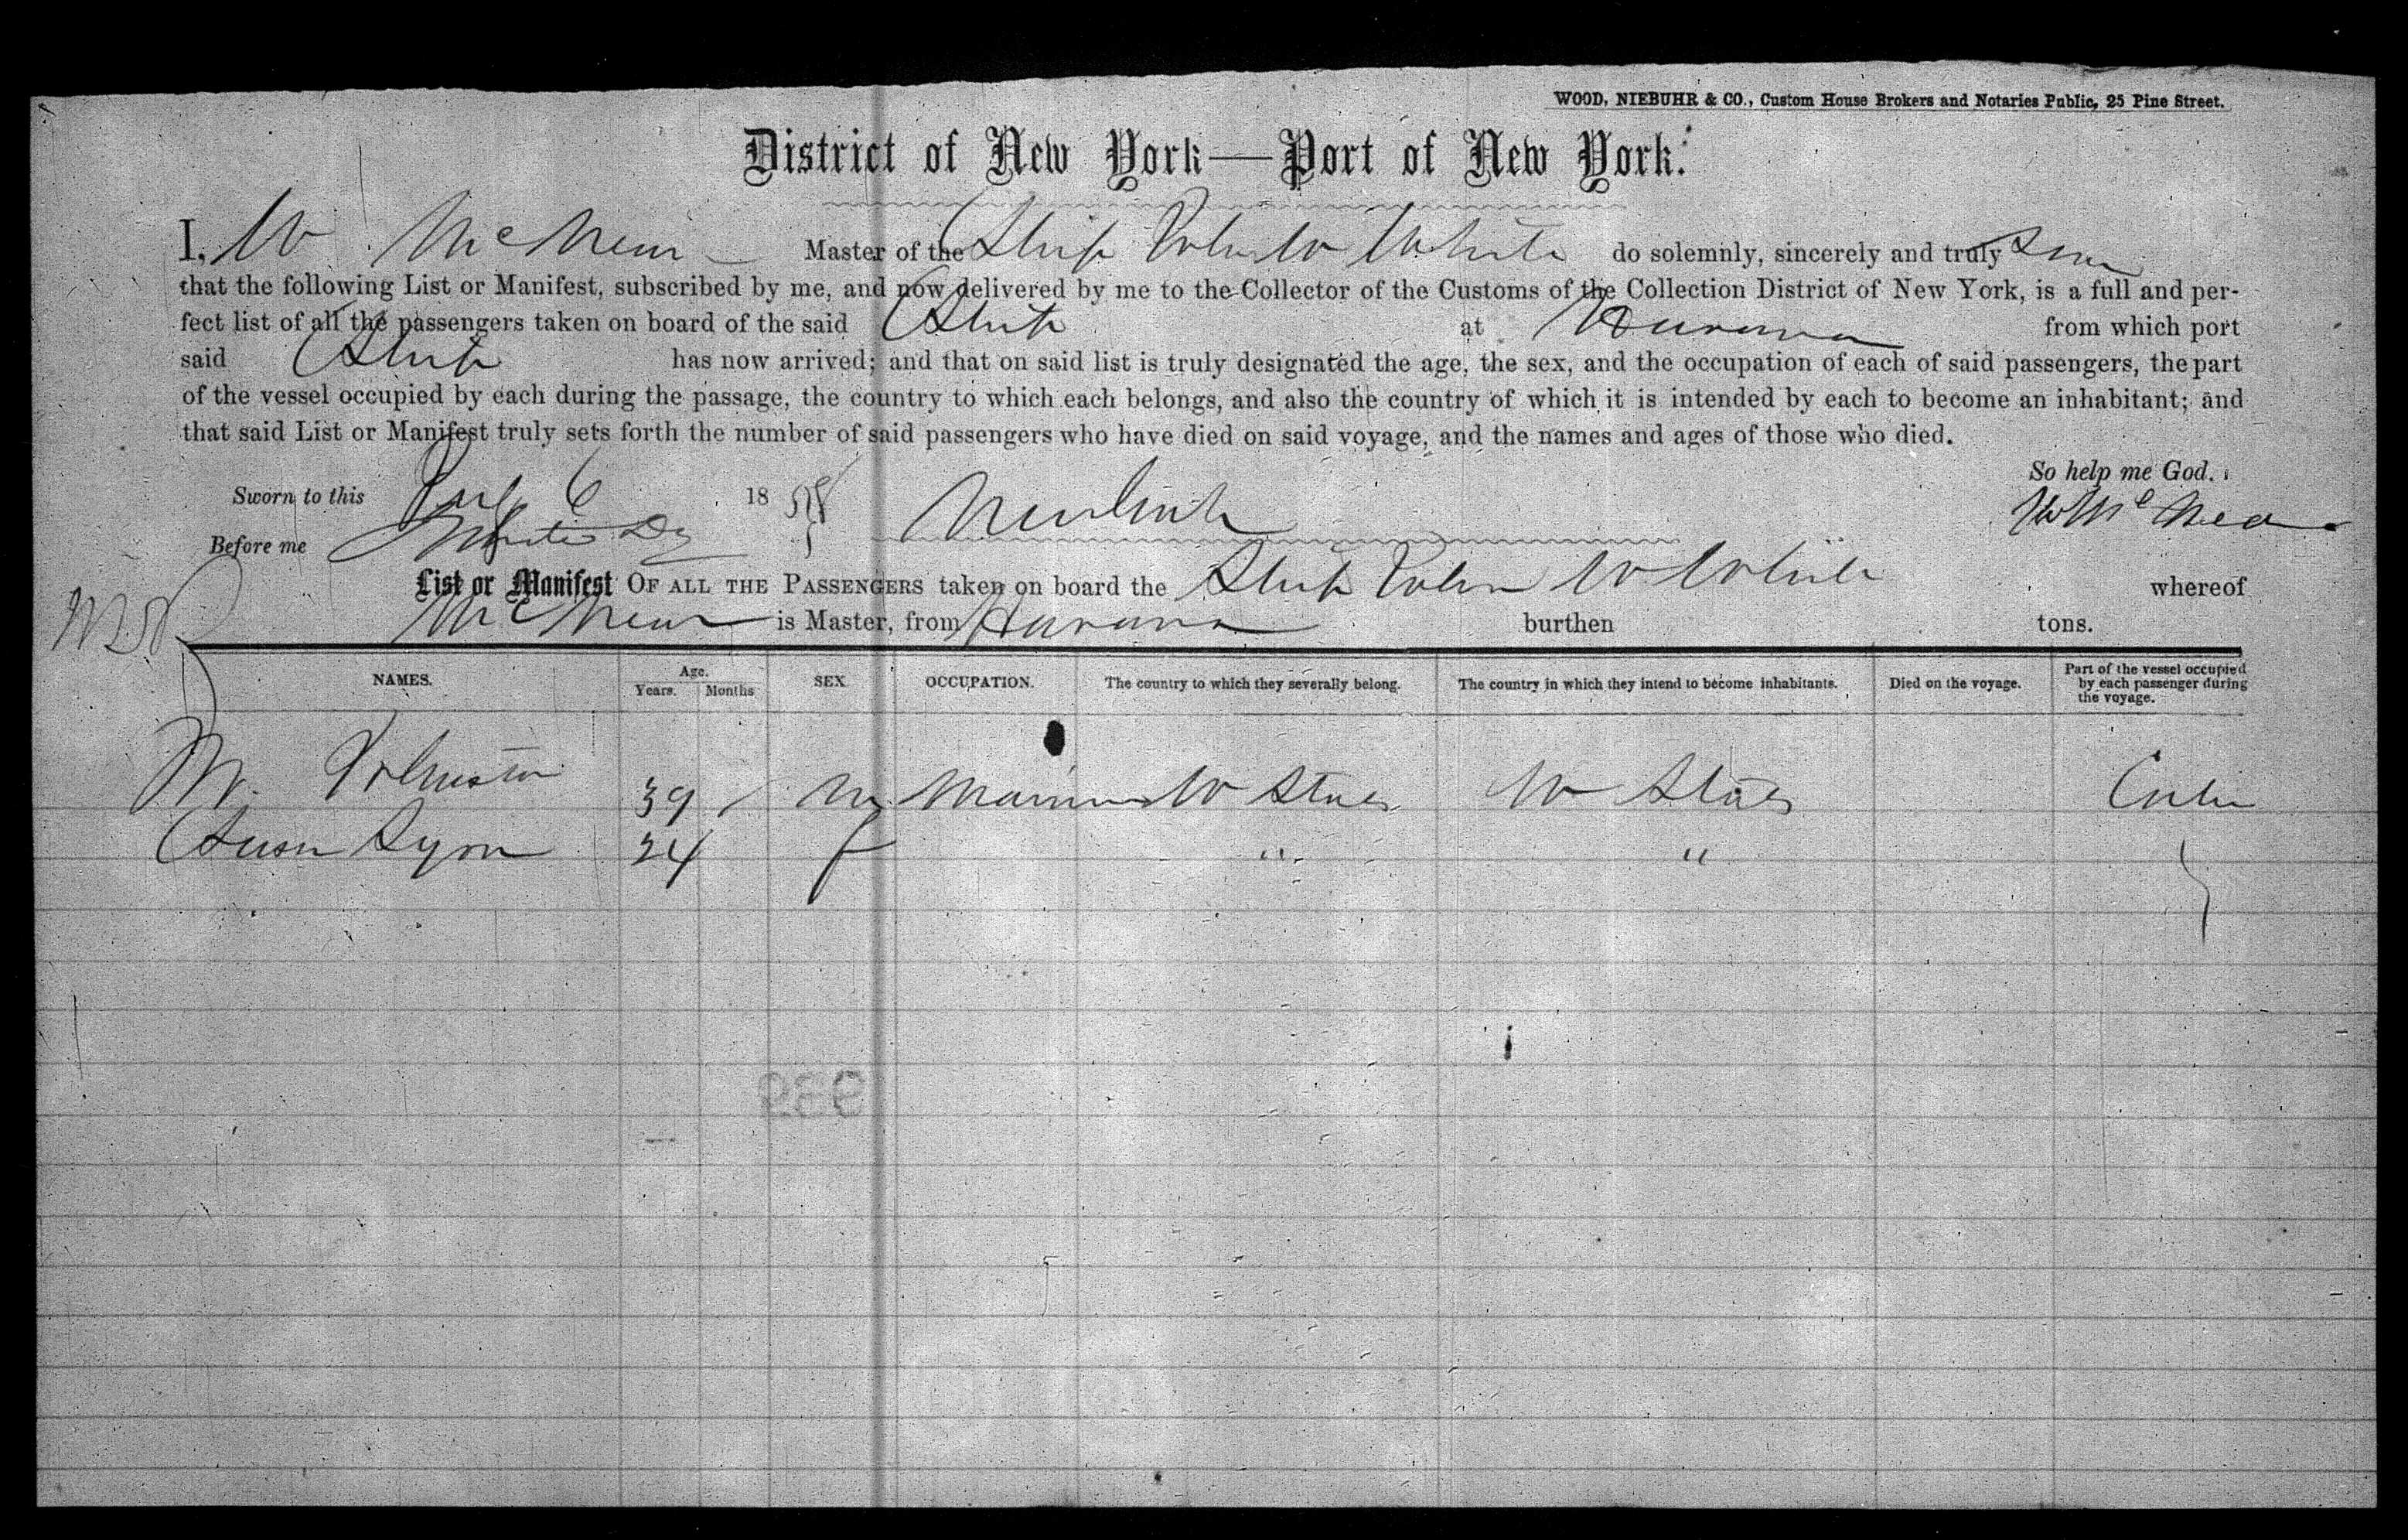 WOOD, NIEBUHR & CO., Custom House Brokers and Notaries Public, 25 Pine Street.
District of New York—Port of New York.
I, W McNear Master of the Ship John W White do solemnly, sincerely and truly Swear
that the following List or Manifest, subscribed by me, and now delivered by me to the Collector of the Customs of the Collection District of New York, is a full and per-
fect list of all the passengers taken on board of the said Ship at Havana from which port
said Ship has now arrived; and that on said list is truly designated the age, the sex, and the occupation of each of said passengers, the part
of the vessel occupied by each during the passage, the country to which each belongs, and also the country of which it is intended by each to become an inhabitant; and
that said List or Manifest truly sets forth the number of said passengers who have died on said voyage, and the names and ages of those who died.
So help me God.
Sworn to this July 6 1858 W McNear
Before me
List or Manifest OF ALL THE PASSENGERS taken on board the Ship John W White whereof
McNear is Master, from Havana burthen tons.
NAMES. Age. Years. Months SEX OCCUPATION. The country to which they severally belong. The country in which they intend to become inhabitants. Died on the voyage. Part of the vessel occupied by each passenger during the voyage.
M. Johnston 39 M Mariner U States U States Cabin
Susan Lyon 24 f " "
939